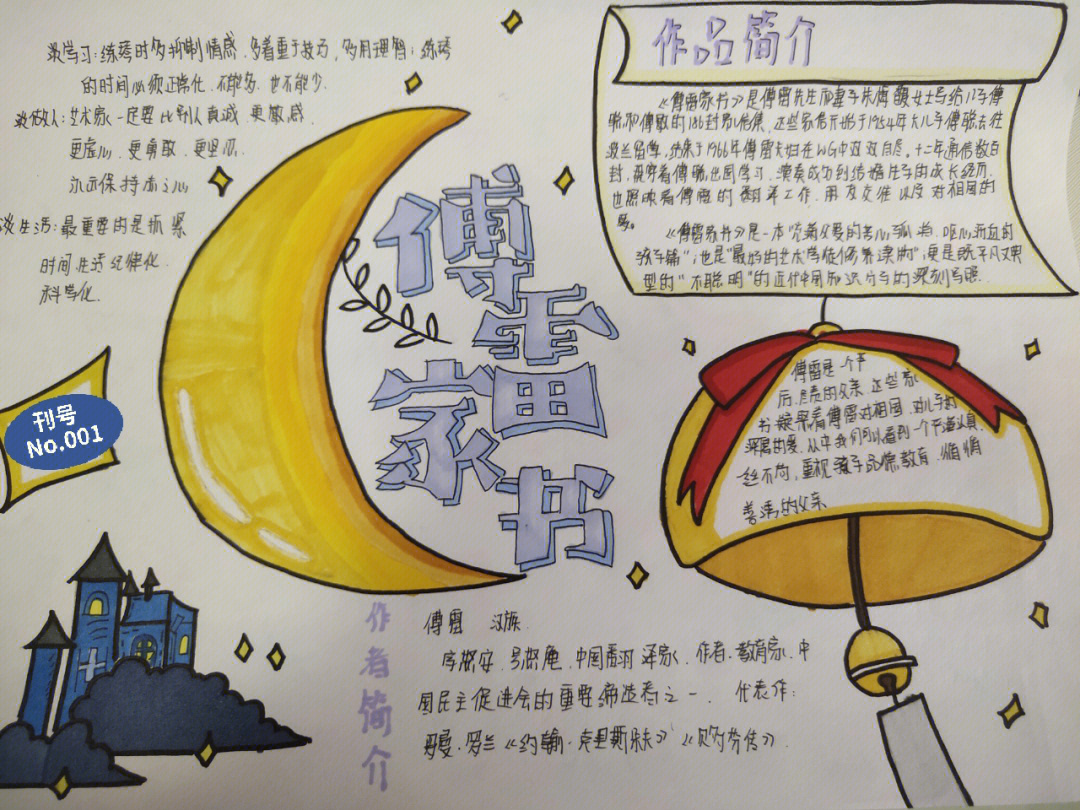 谈学习：练琴时多抑制情感，多着重于技巧，多用理智；练琴
的时间必须正常化，不能多，也不能少.
谈做人：艺术家一定要比别人真诚，更敏感，
更虚心，更勇敢，更坚忍.
永远保持赤子心
谈生活：最重要的是抓紧
时间生活纪律化
科学化.
刊号
No.001
傅雷
家书
作品简介
《傅雷家书》是傅雷先生和妻子朱傅馥女士写给儿子傅
聪和傅敏的186封家信集，这些家信开始于1954年大儿子傅聪去往
波兰留学，结束于1966年傅雷夫妇在WG中双双自尽，十二年通信数百
封，贯穿着傅聪出国学习，演奏成功到结婚生子的成长经历，
也照映着傅雷的翻译工作、朋友交往以及对祖国的
《傅雷家书》是一本“充满父爱的苦心孤诣、呕心沥血的
教子篇”；也是“最好的艺术学徒修养读物”；更是既平凡又典
型的“不聪明”的近代中国知识分子的深刻写照.
傅雷是一个严
厉、尽责的父亲，这些家
书凝聚着傅雷对祖国，对儿子的
深厚的爱.从中我们可以看到一个严谨认真，
一丝不苟，重视孩子品德教育，循循
善诱的父亲
作者简介
傅雷 汉族.
字怒安，号怒庵，中国翻译家，作者，教育家，中
国民主促进会的重要缔造者之一. 代表作：
罗曼·罗兰《约翰·克里斯朵夫》《贝多芬传》.